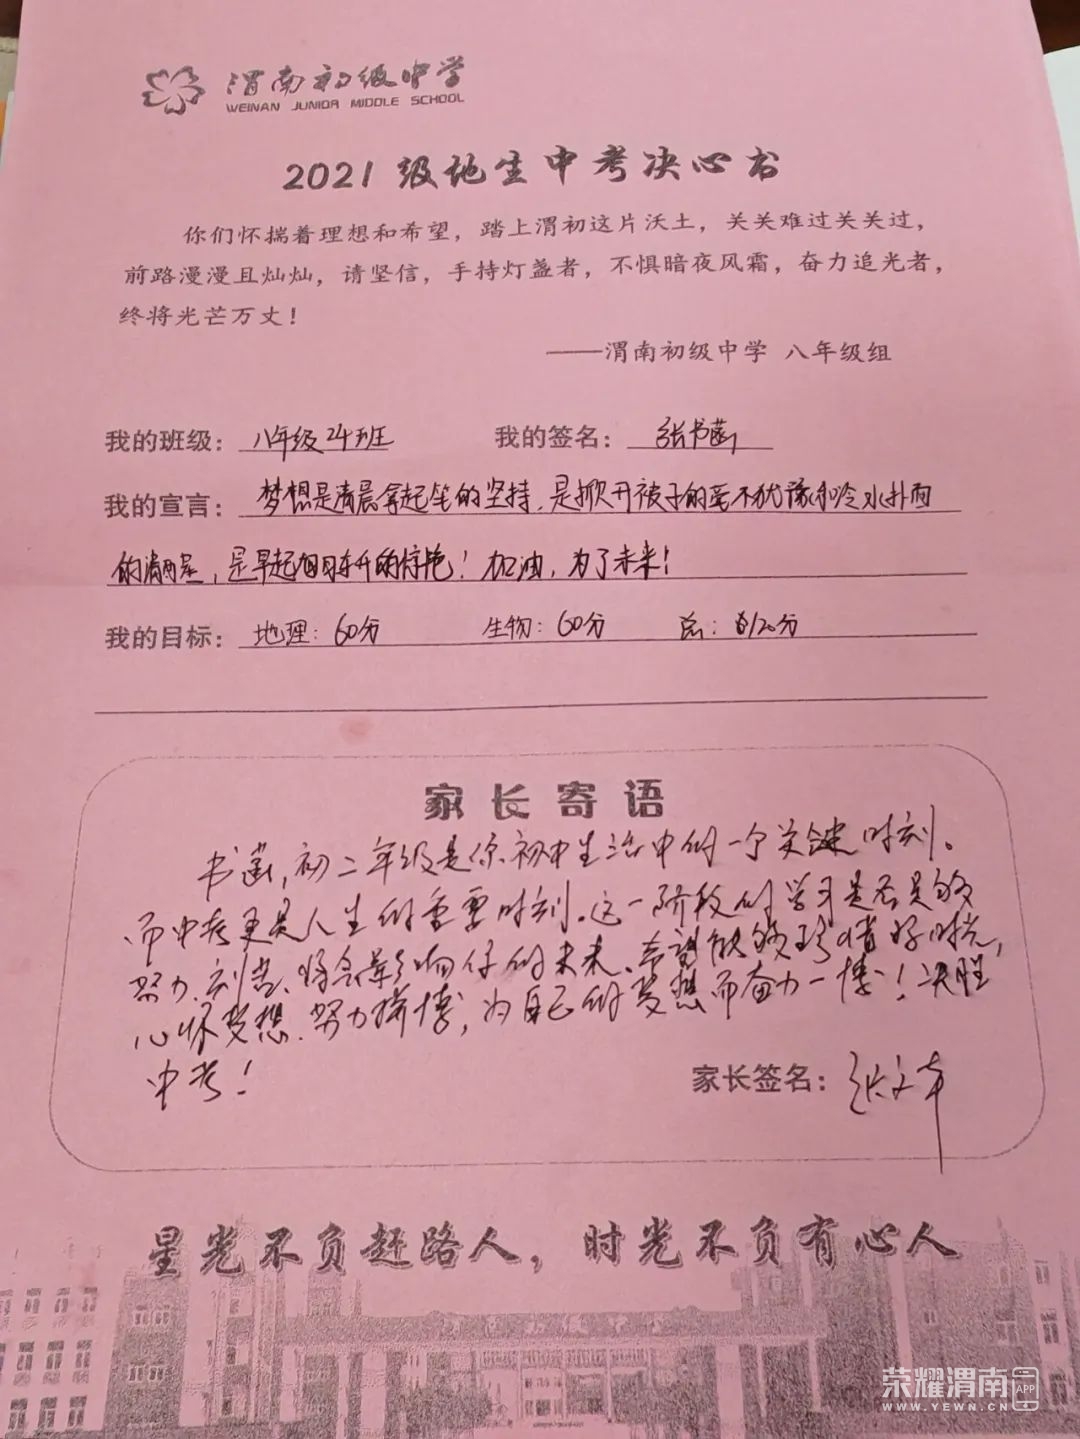 渭南初级中学
WEINAN JUNIOR MIDDLE SCHOOL
2021级地生中考决心书
你们怀揣着理想和希望，踏上渭初这片沃土，关关难过关关过，
前路漫漫且灿灿，请坚信，手持灯盏者，不惧暗夜风霜，奋力追光者，
终将光芒万丈！
——渭南初级中学 八年级组
我的班级：八年级24班 我的签名：张书菡
我的宣言：梦想是清晨拿起笔的坚持，是掀开被子的毫不犹豫和冷水扑面
的满足，是早起旭日东升的惊艳！加油，为了未来！
我的目标：地理：60分 生物：60分 总：120分
家长寄语
书菡，初二年级是你初中生活中的一个关键时刻。
而中考更是人生的重要时刻。这一阶段的学习是否足够
努力、刻苦、将会影响你的未来、希望能够珍惜好时光，
心怀梦想、努力拼搏，为自己的梦想而奋力一搏！决胜
中考！
家长签名：张文
星光不负赶路人，时光不负有心人
荣耀渭南APP
WWW.YEWN.CN